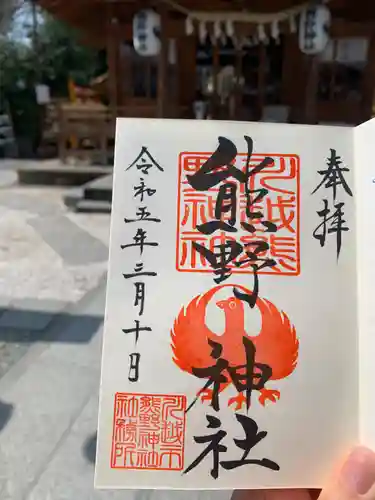 奉拝
川越熊
野神社
熊野神社
令和五年三月十日
川越市
熊野神社
社務所